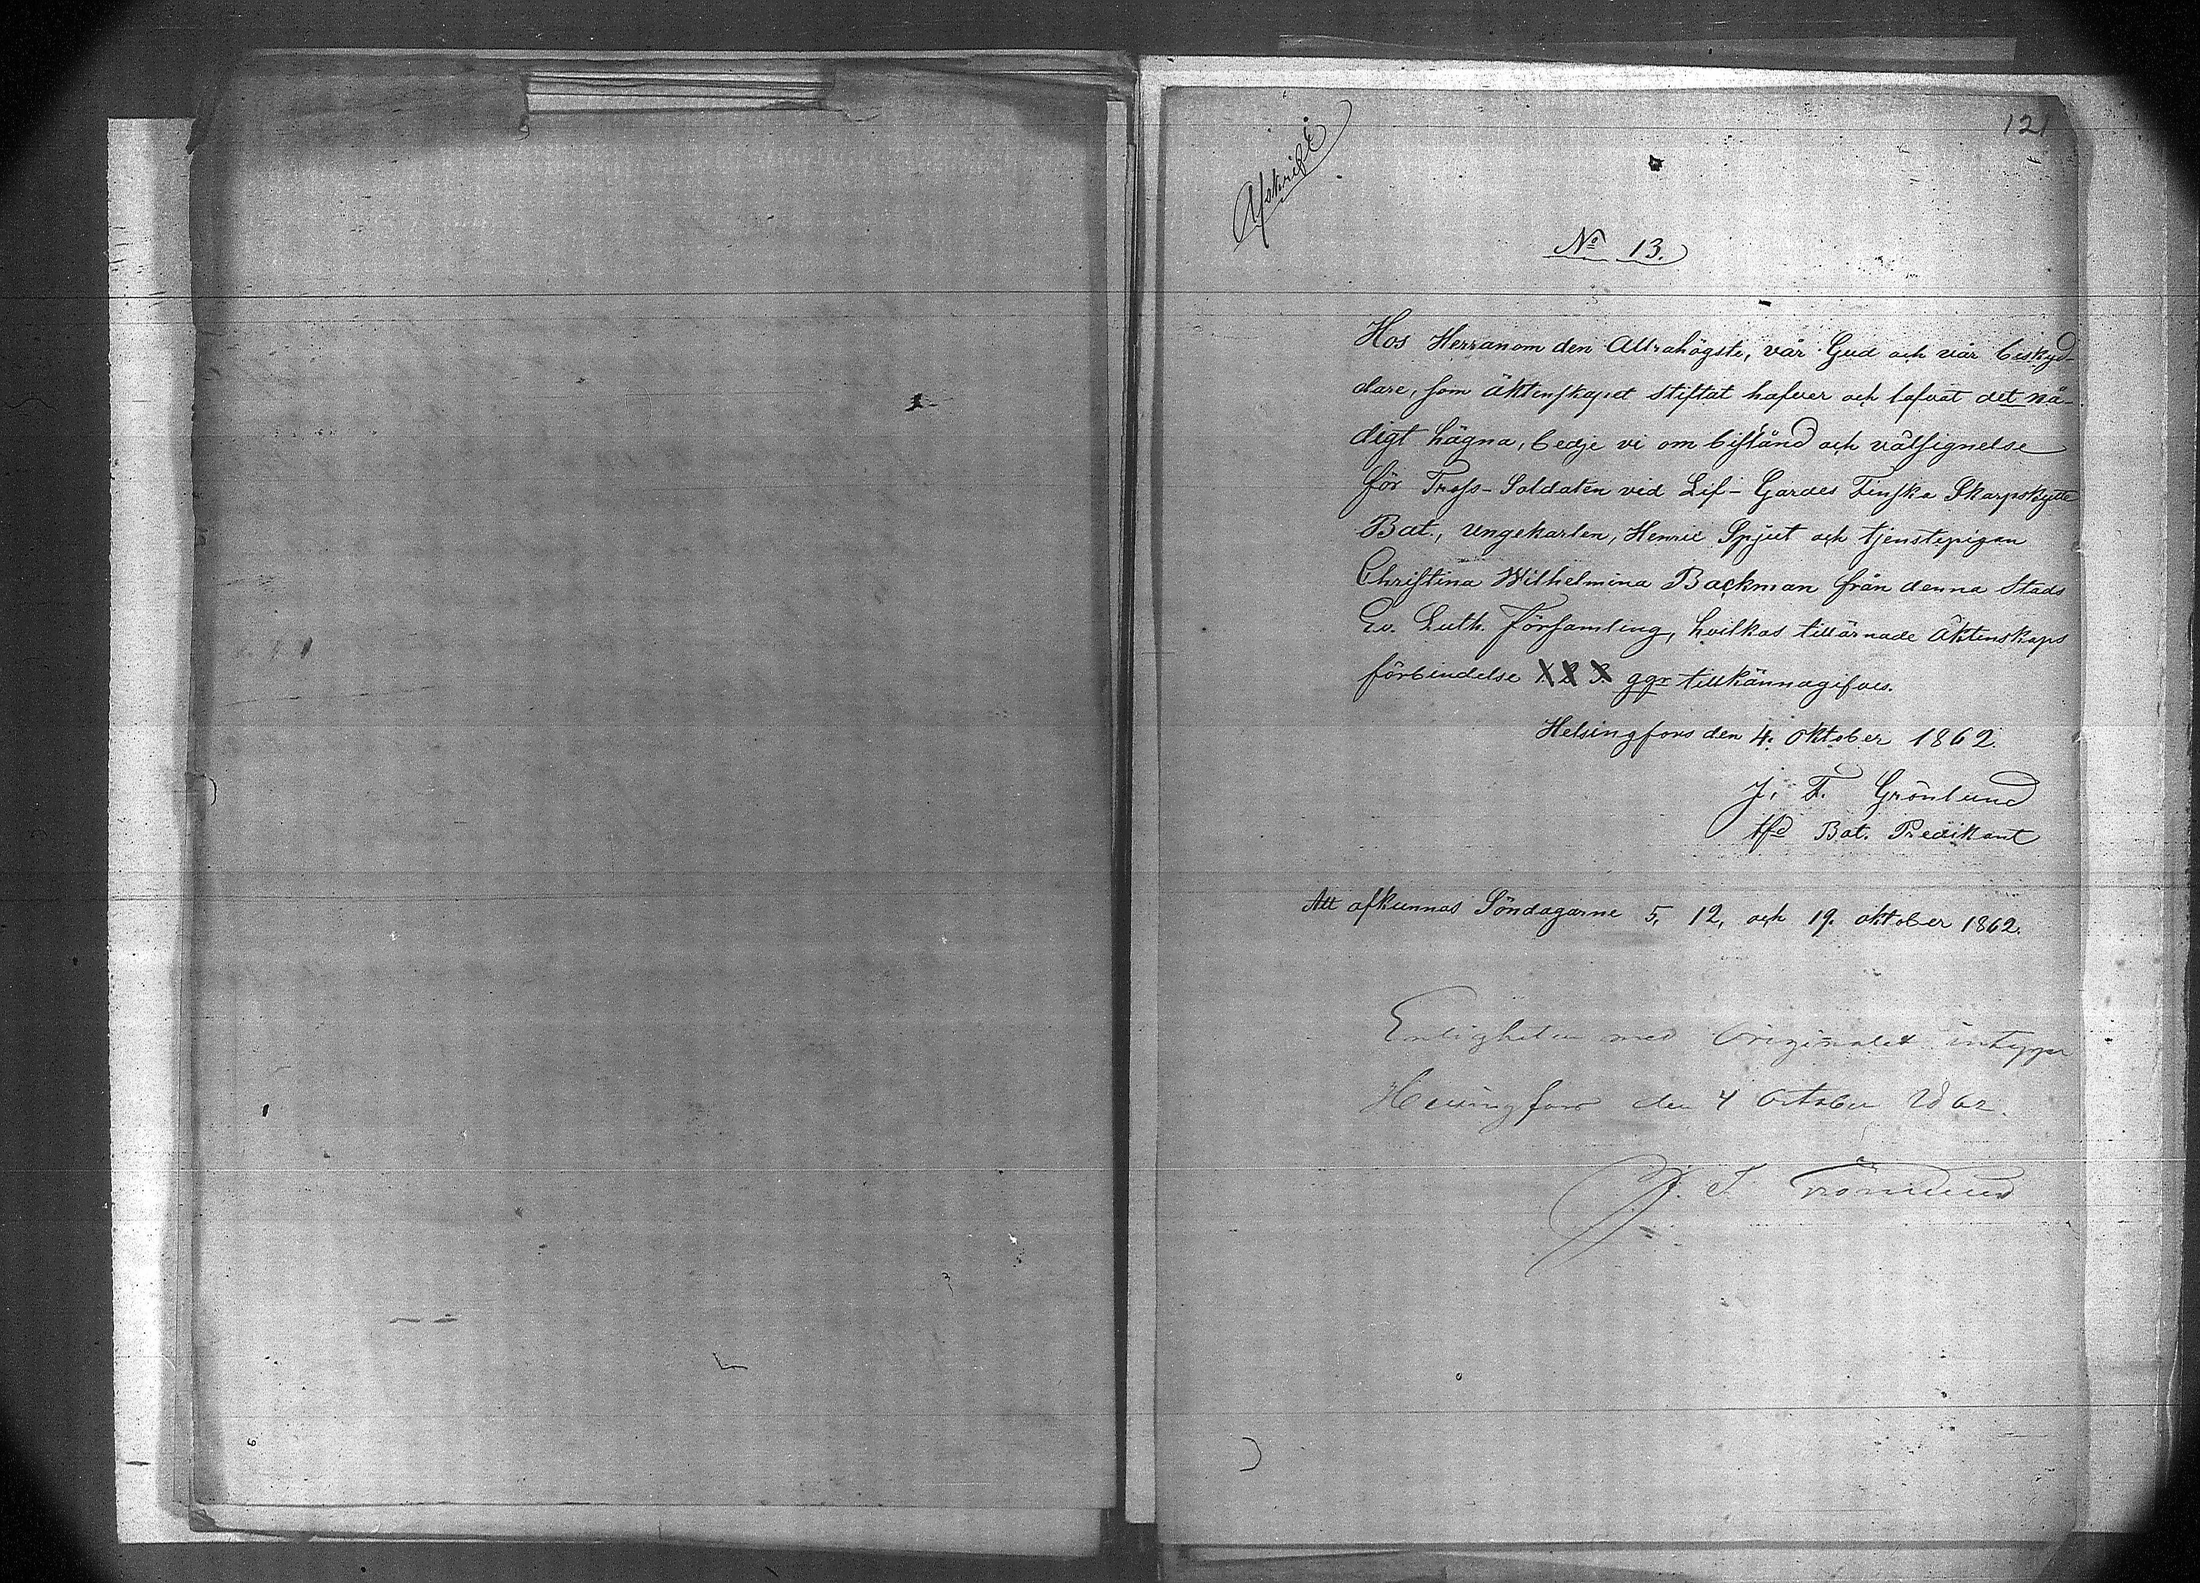 121
Afskrift
No 13.
Hos Herranom den Allrahögste, vår Gud och vår beskyd-
dare, som äktenskapet stiftat hafver och lofvat det nå-
digt hägna, bedje vi om bistånd och välsignelse
för Tross-Soldaten vid Lif-Gardes Finska Skarpskytte
Bat., ungekarlen, Henric Spjut och tjenstepigan
Christina Wilhelmina Backman från denna Stads
Ev. Luth. Församling, hvilkas tillärnade äktenskaps
förbindelse 1. 2. 3. ggr tillkännagifves.
Helsingfors den 4. oktober 1862.
J. F. Grönlund
tfd Bat. Predikant
Att afkunnas Söndagarne 5, 12, och 19. oktober 1862.
Enligheten med Originalet intygar
Helsingfors den 4 October 1862.
J. F. Grönlund